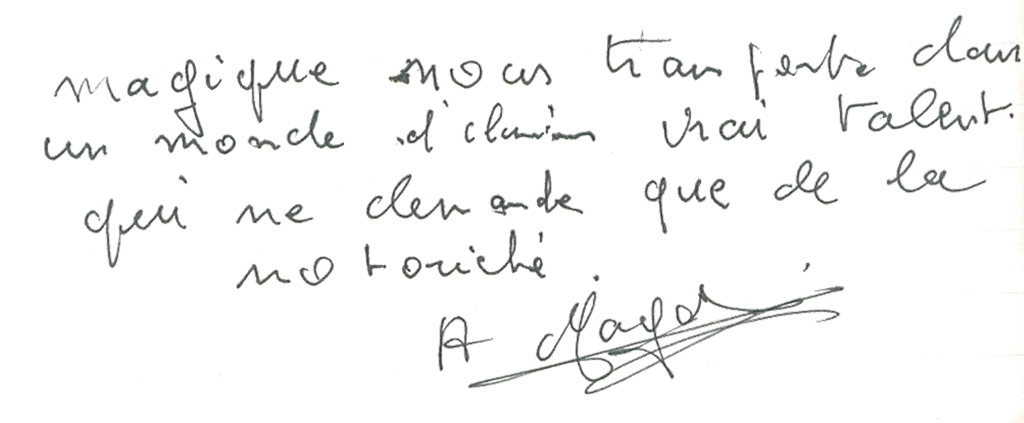 magique nous transporte dans
un monde vrai talent.
qui ne demande que de la
notoriété.
A